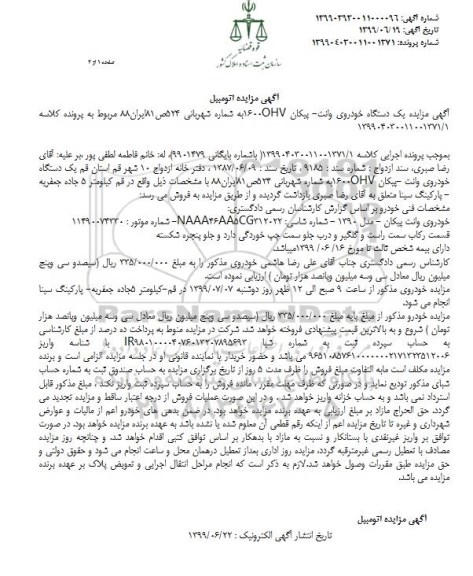 شماره آگهی: ۱۳۹۹۰۳۹۳۰۰۱۱۰۰۰۰۹۶
تاریخ آگهی: ۱۳۹۹/۰۶/۱۹
شماره پرونده: ۱۳۹۹۰۴۰۳۰۰۱۱۰۰۱۳۷۱
قوه قضائیه
سازمان ثبت اسناد و املاک کشور
صفحه ۱ از ۲
آگهی مزایده اتومبیل
آگهی مزایده یک دستگاه خودروی وانت- پیکان ۱۶۰۰OHVبه شماره شهربانی ۵۲۴ص۸۱ایران۸۸ مربوط به پرونده کلاسه
۱۳۹۹۰۴۰۳۰۰۱۱۰۰۱۳۷۱/۱
بموجب پرونده اجرایی کلاسه ۱۳۹۹۰۴۰۳۰۰۱۱۰۰۱۳۷۱/۱( باشماره بایگانی ۹۹۰۱۴۷۹) له: خانم فاطمه لطفی پور ،بر علیه: آقای
رضا صبری، سند ازدواج : شماره سند : ۹۱۸۵ ، تاریخ سند : ۱۳۸۷/۰۶/۰۹ ، دفتر خانه ازدواج ۱۰ شهر قم استان قم یک دستگاه
خودروی وانت -پیکان ۱۶۰۰OHVبه شماره شهربانی ۵۲۴ص۸۱ایران۸۸ با مشخصات ذیل واقع در قم کیلومتر ۵ جاده جعفریه
- پارکینگ سینا متعلق به آقای رضا صبری بازداشت گردیده و از طریق مزایده به فروش می رسد:
مشخصات فنی خودرو بر اساس گزارش کارشناسان رسمی دادگستری:
خودروی وانت پیکان – مدل ۱۳۹۰ – شماره شاسی: NAAA۴۶AA۵CG۲۱۲۰۲۲– شماره موتور : ۱۱۴۹۰۰۷۴۳۳۰ –
قسمت رکاب سمت راست و گلگیر و درب جلو سمت چپ خوردگی دارد و جلو پنجره شکسته
دارای بیمه شخص ثالث تا مورخ ۱۶ /۰۶ /۱۳۹۹میباشد.
کارشناس رسمی دادگستری جناب آقای علی رضا هاشمی خودروی مذکور را به مبلغ ۳۳۵/۰۰۰/۰۰۰ ریال (سیصدو سی وپنج
میلیون ریال معادل سی وسه میلیون وپانصد هزار تومان ) ارزیابی نموده است.
مزایده خودروی مذکور از ساعت ۹ صبح الی ۱۲ ظهر روز دوشنبه ۱۳۹۹/۰۷/۰۷ در قم-کیلومتر ۵جاده جعفریه- پارکینگ سینا
انجام می شود.
مزایده خودرو مذکور از مبلغ پایه مبلغ ۳۳۵/۰۰۰/۰۰۰ ریال (سیصدو سی وپنج میلیون ریال معادل سی وسه میلیون وپانصد هزار
تومان ) شروع و به بالاترین قیمت پیشنهادی فروخته خواهد شد. شرکت در مزایده منوط به پرداخت ده درصد از مبلغ کارشناسی
به حساب سپرده ثبت به شماره شبا با شناسه واریز
می باشد و حضور خریدار یا نماینده قانونی او در جلسه مزایده الزامی است و برنده
مزایده مکلف است مابه التفاوت مبلغ فروش را ظرف مدت ۵ روز از تاریخ برگزاری مزایده به حساب صندوق ثبت به شماره حساب
شبای مذکور تودیع نماید و در صورتی که ظرف مهلت مقرر، مانده فروش را به حساب سپرده ثبت واریز نکند ، مبلغ مذکور قابل
استرداد نمی باشد و به حساب خزانه واریز خواهد شد. ، و در این صورت عملیات فروش از درجه اعتبار ساقط و مزایده تجدید می
گردد. حق الحراج مازاد بر مبلغ ارزیابی به عهده برنده مزایده خواهد بود. در ضمن بدهی های خودرو اعم از مالیات و عوارض
شهرداری و غیره تا تاریخ مزایده اعم از اینکه رقم قطعی آن معلوم شده یا نشده باشد به عهده برنده مزایده خواهد بود. در صورت
توافق بر واریز غیرنقدی با بستانکار و نسبت به مازاد با بدهکار بر اساس توافق کتبی اقدام خواهد شد. و چنانچه روز مزایده
مصادف با تعطیل رسمی غیرمترقبه گردد، مزایده روز اداری بعداز تعطیل درهمان محل و ساعت انجام می شود و حقوق دولتی و
حق مزایده طبق مقررات وصول خواهد شد.لازم به ذکر است که انجام مراحل انتقال اجرایی و تعویض پلاک بر عهده برنده
مزایده می باشد.
آگهی مزایده اتومبیل
تاریخ انتشار آگهی الکترونیک : ۱۳۹۹/۰۶/۲۲